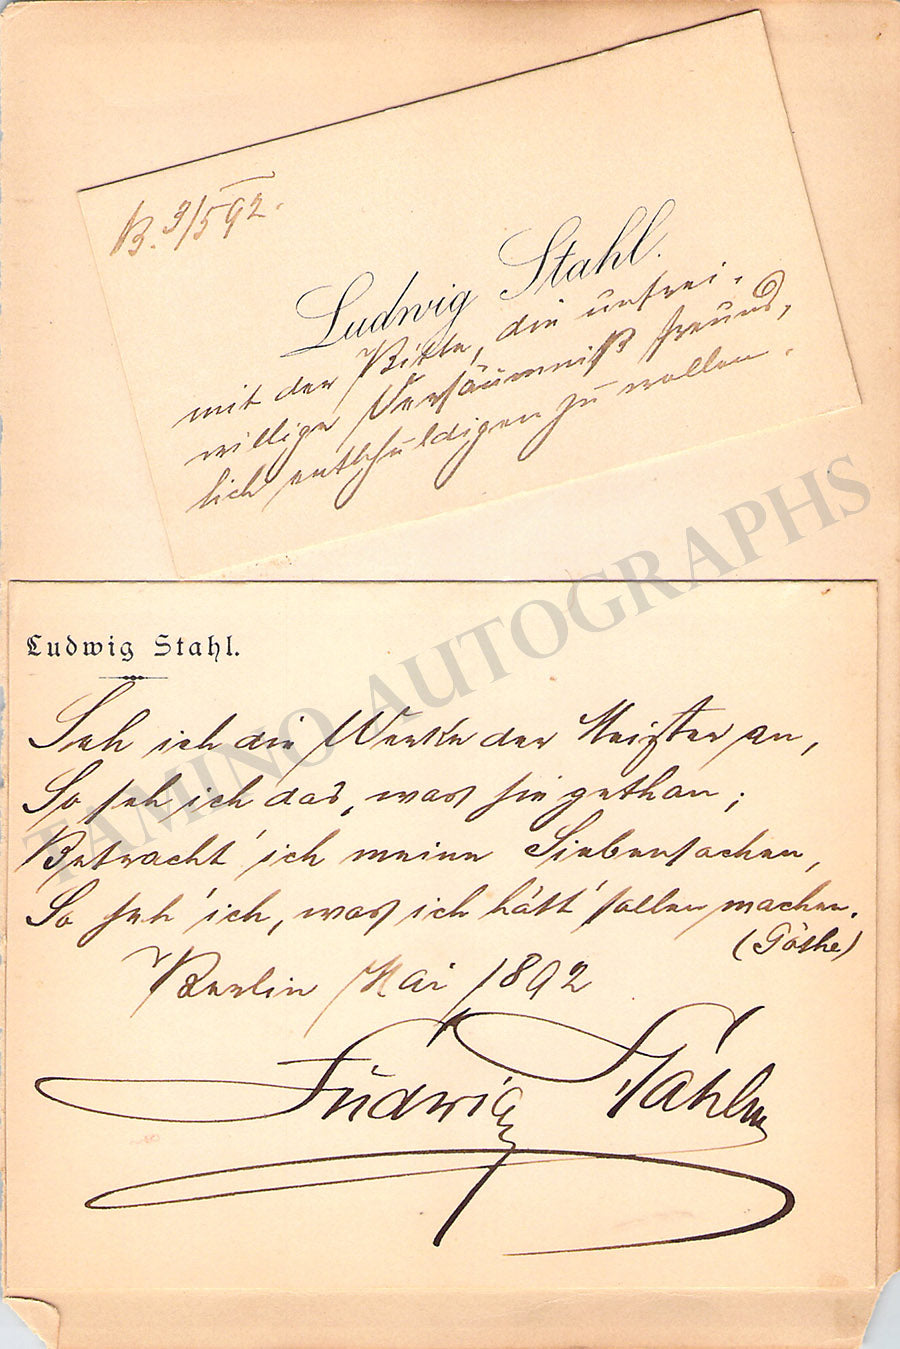 B. 3/5 92.
Ludwig Stahl.
mit der Bitte, die unfrei-
willige Versäumniß freund,
lich entschuldigen zu wollen.
TAMINO AUTOGRAPHS
Ludwig Stahl.
Seh ich die Werke der Meister an,
So seh ich das, was sie gethan;
Betracht' ich meine Siebensachen,
So seh' ich, was ich hätt' sollen machen.
(Göthe)
Berlin Mai 1892
Ludwig Stahl